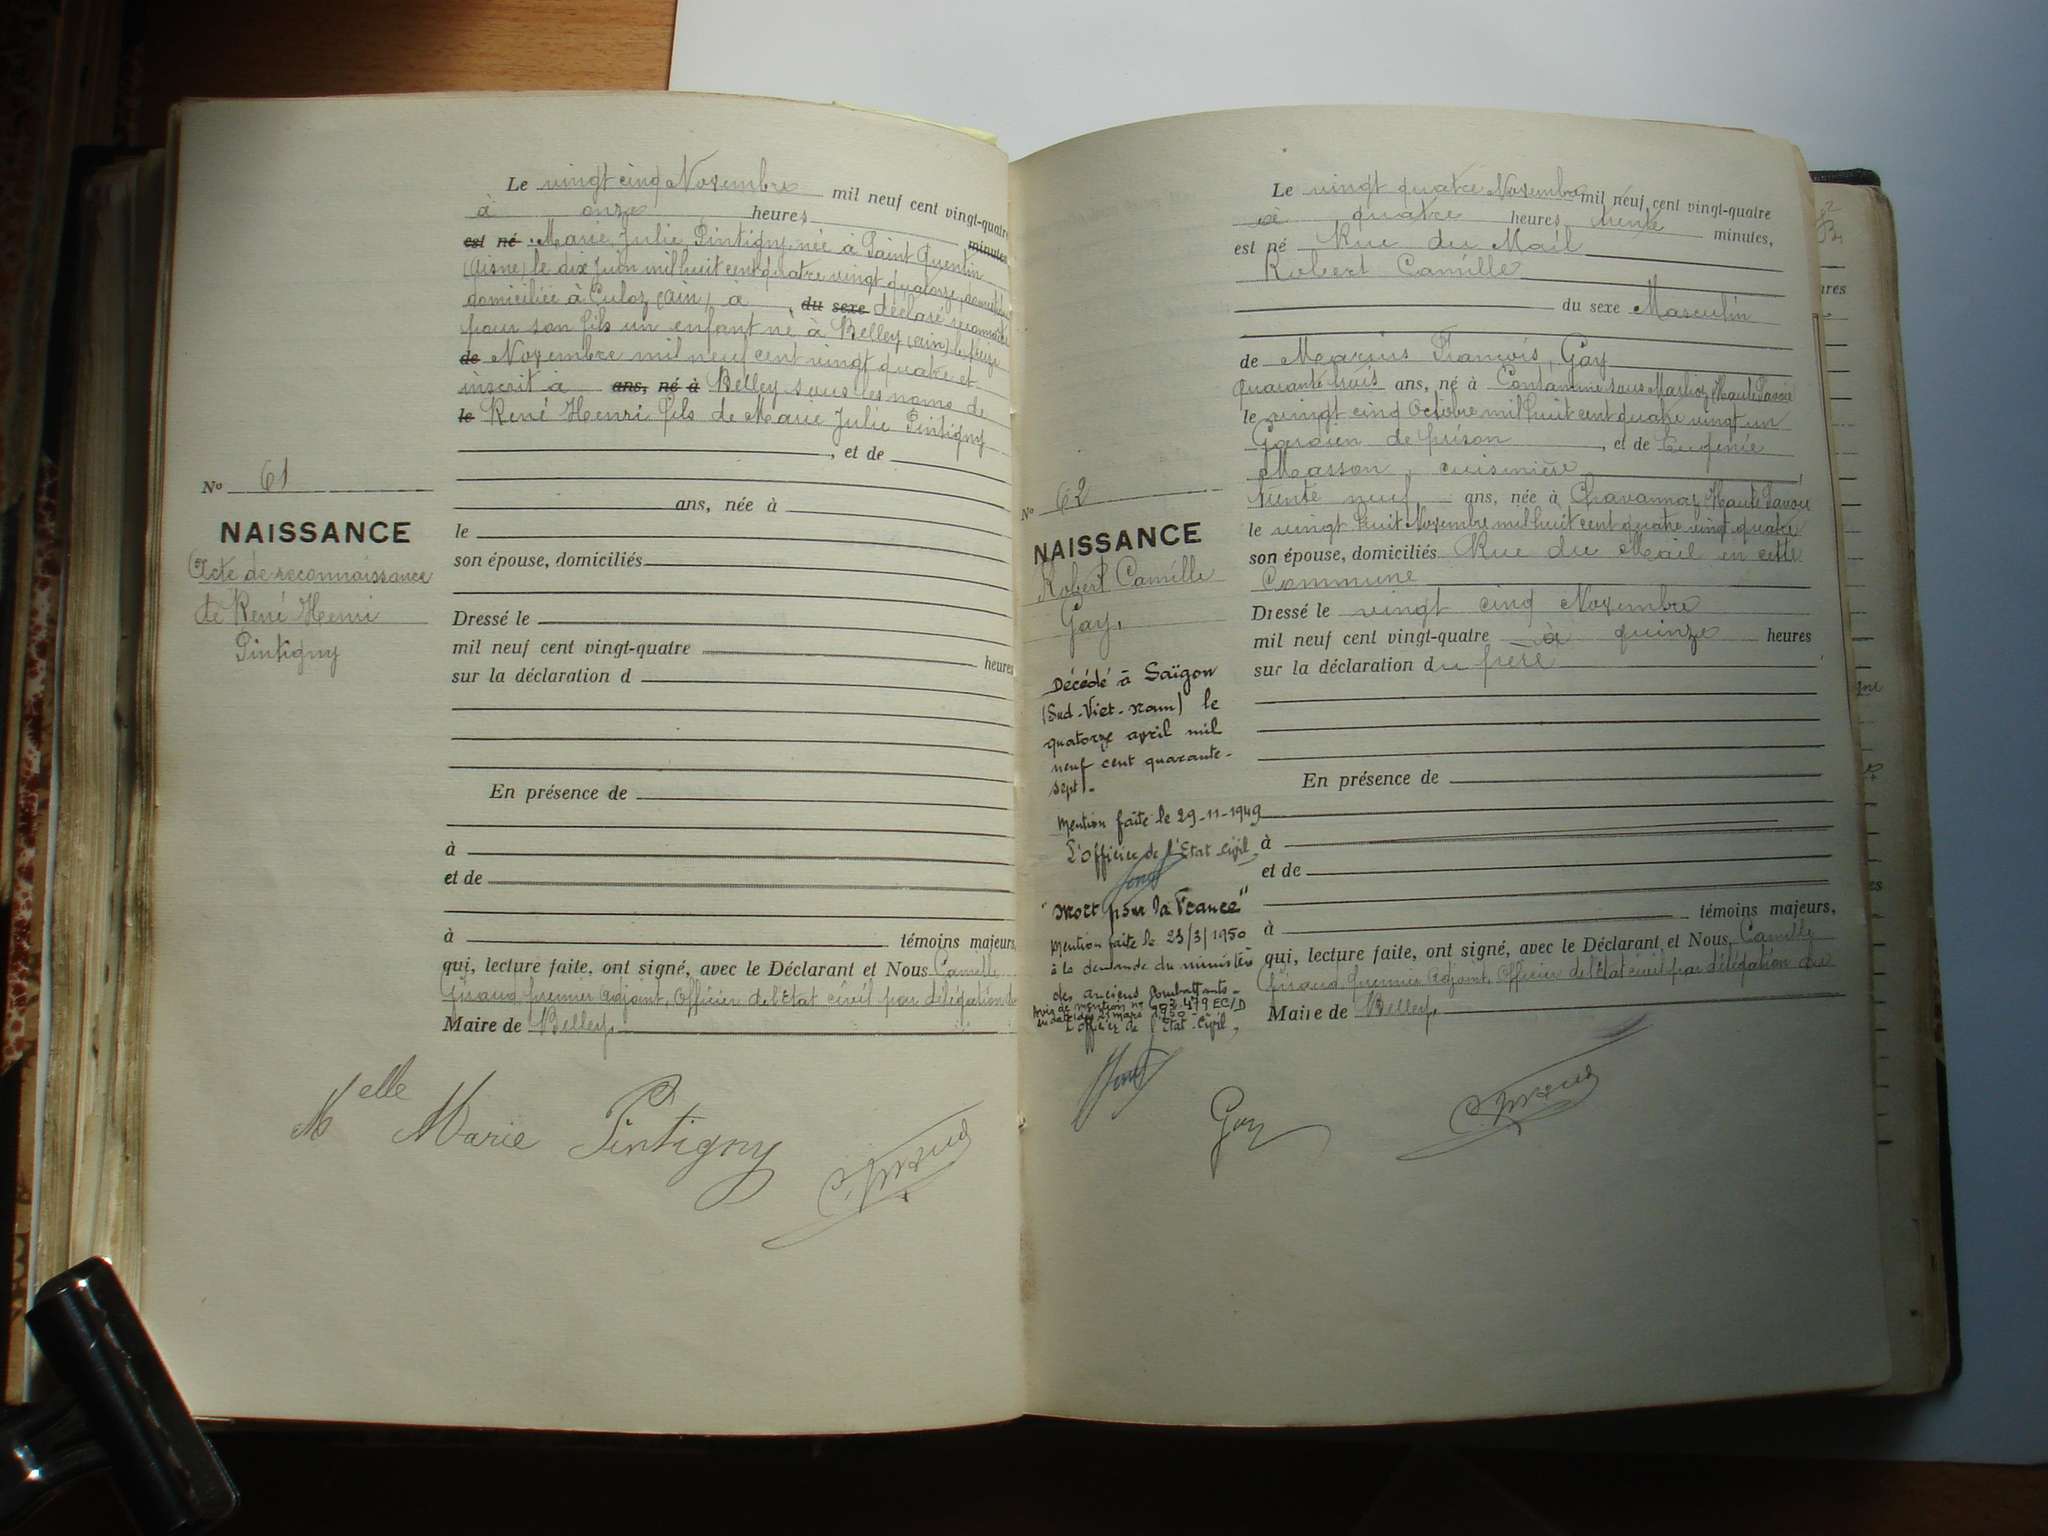 Le vingt cinq Novembre mil neuf cent vingt-quatre
à onze heures minutes
est né Marie Julie Pintigny née à Saint Quentin
(Aisne) le dix Juin mil huit cent quatre vingt quatorze,
domiciliée à Culoz (Ain) à , du sexe déclaré reconnaître
pour son fils un enfant né à Belley (Ain) le
de Novembre mil neuf cent vingt quatre et
inscrit à ans, né à Belley sous les noms de
le René Henri fils de Marie Julie Pintigny
, et de
No 61
NAISSANCE
Acte de reconnaissance
de René Henri
Pintigny
ans, née à
le
son épouse, domiciliés
Dressé le
mil neuf cent vingt-quatre heures
sur la déclaration d
En présence de
à
et de
à témoins majeurs,
qui, lecture faite, ont signé, avec le Déclarant et Nous Camille
Giraud premier adjoint, Officier de l'Etat civil par délégation du
Maire de Belley.
Melle Marie Pintigny
Le vingt quatre Novembre mil neuf cent vingt-quatre
à quatre heures trente minutes,
est né Rue du Mail
Robert Camille
du sexe Masculin
de Marius François Gay
quarante trois ans, né à Contamine sous Marlioz, Haute Savoie
le vingt cinq Octobre mil huit cent quatre vingt un
Gardien de prison , et de Eugénie
Masson, cuisinière
trente neuf ans, née à Chavannaz, Haute Savoie
le vingt huit Novembre mil huit cent quatre vingt quatre
son épouse, domiciliés Rue du Mail en cette
Commune
Dressé le vingt cinq Novembre
mil neuf cent vingt-quatre à quinze heures
sur la déclaration du père
En présence de
à
et de
à témoins majeurs,
qui, lecture faite, ont signé, avec le Déclarant et Nous, Camille
Giraud, premier adjoint, Officier de l'Etat civil par délégation du
Maire de Belley.
No 62
NAISSANCE
Robert Camille
Gay,
Décédé à Saïgon
(Sud-Viet-nam) le
quatorze avril mil
neuf cent quarante-
sept.
Mention faite le 29-11-1949
L'Officier de l'Etat Civil
"Mort pour la France"
Mention faite le 23/3/1950
à la demande du ministère
des anciens Combattants-
Avis de mention no 479 EC/D
en date du mars 1950
L'Officier de l'Etat-Civil,
Gay